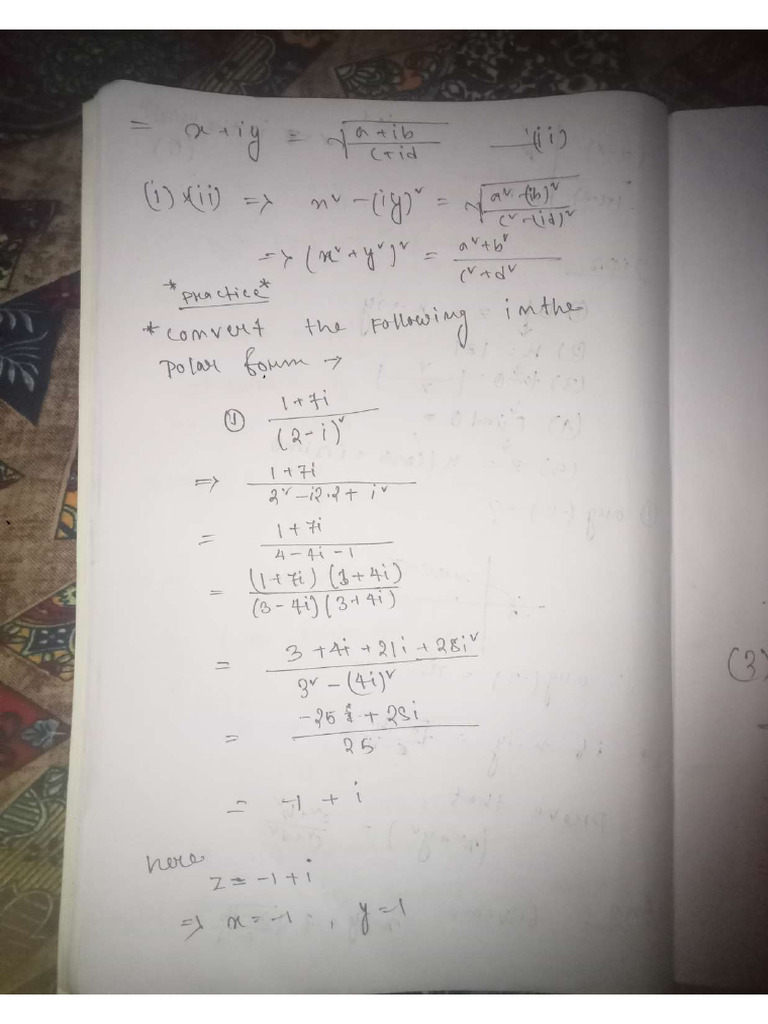 = x + iy = √(a + ib / c + id) —(ii)
(i) × (ii) => x² - (iy)² = √(a² - (ib)² / c² - (id)²)
=> (x² + y²)² = a² + b² / c² + d²
*Practice*
* convert the following in the
polar form →
① 1 + 7i / (2 - i)²
=> 1 + 7i / 2² - i2·2 + i²
= 1 + 7i / 4 - 4i - 1
= (1 + 7i) (3 + 4i) / (3 - 4i) (3 + 4i)
= 3 + 4i + 21i + 28i² / 3² - (4i)²
= -25 + 25i / 25
= -1 + i
here
z = -1 + i
=> x = -1 , y = 1
(3)